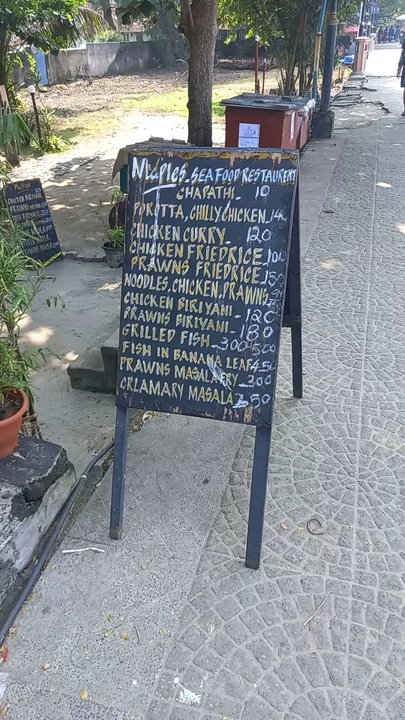 Maples SEA FOOD RESTAURENT
CHAPATHI. 10
POROTTA, CHILLYCHICKEN. 140
CHICKEN CURRY. 120
CHICKEN FRIEDRICE. 100
PRAWNS FRIEDRICE. 150
NOODLES, CHICKEN, PRAWNS
CHICKEN BIRIYANI - 120
PRAWNS BIRIYANI - 180
GRILLED FISH - 300 500
FISH IN BANANA LEAF 450
PRAWNS MASALA FRY - 300
CRLAMARY MASALA 350